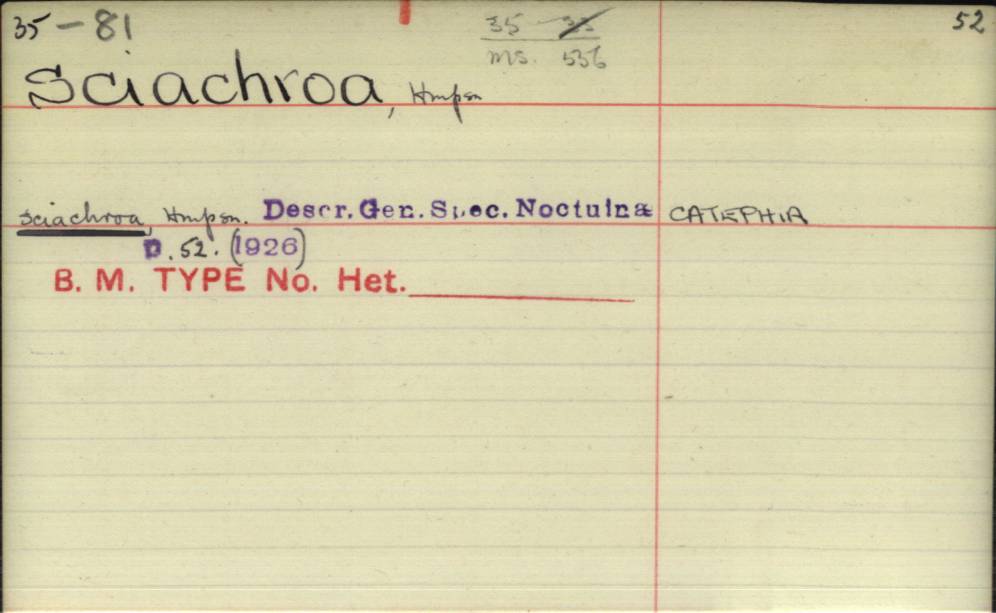 35-81 35-33 52
ms. 536
Sciachroa, Hmpsn
sciachroa, Hmpsn. Descr. Gen. Spec. Noctuinæ CATEPHIA
p. 52. (1926)
B. M. TYPE No. Het.